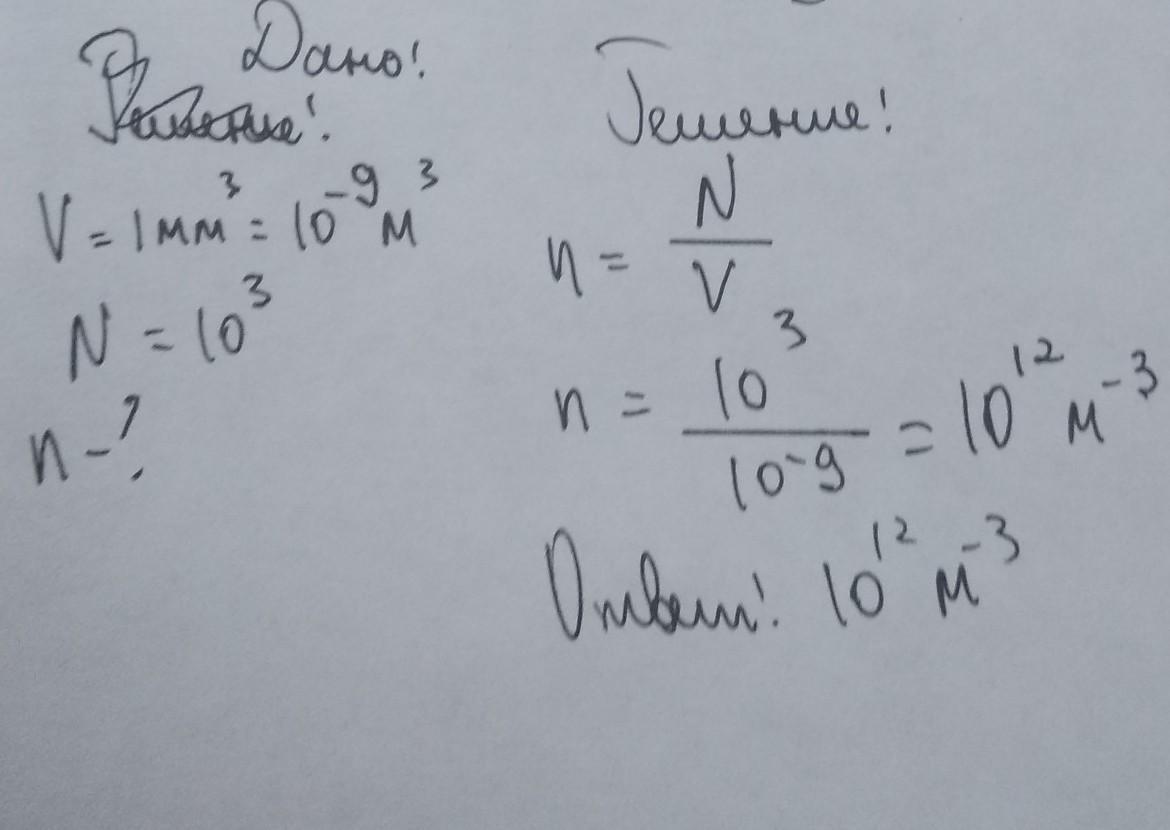 Дано:
Решение:
V = 1 мм³ = 10⁻⁹ м³
N = 10³
n - ?
Решение:
n = N/V
n = 10³/10⁻⁹ = 10¹² м⁻³
Ответ: 10¹² м⁻³